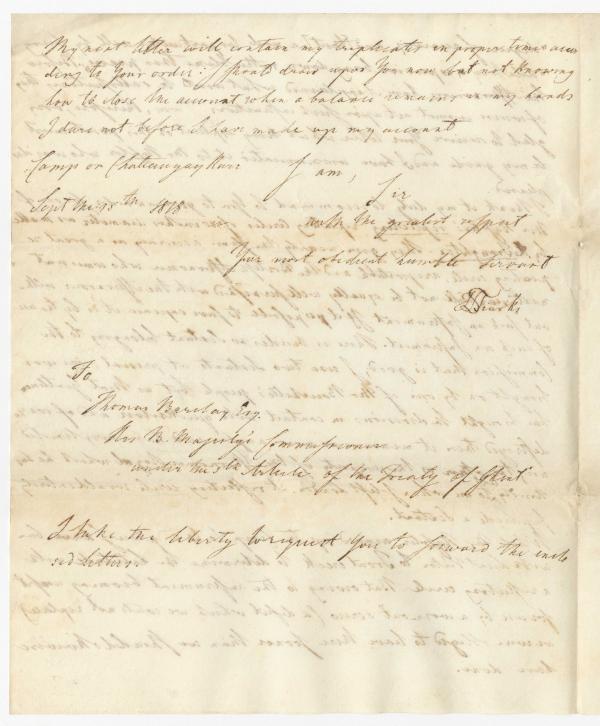 My next letter will contain my triplicates in proper time accor
ding to Your order: I shout draw upon You now but not knowing
how to close the account when a balance remains in my hands
I dare not before I have made up my account
Camp on Chateaugay River I am,
Sept the 18th 1818 Sir
with the greatest respect
Your most obedient humble Servant
Tiarks
To
Thomas Barclay Esq.
His B. Majesty's Commissioner
under the 5th Article of the Treaty of Ghent
I take the liberty to request You to forward the inclo
sed letters.